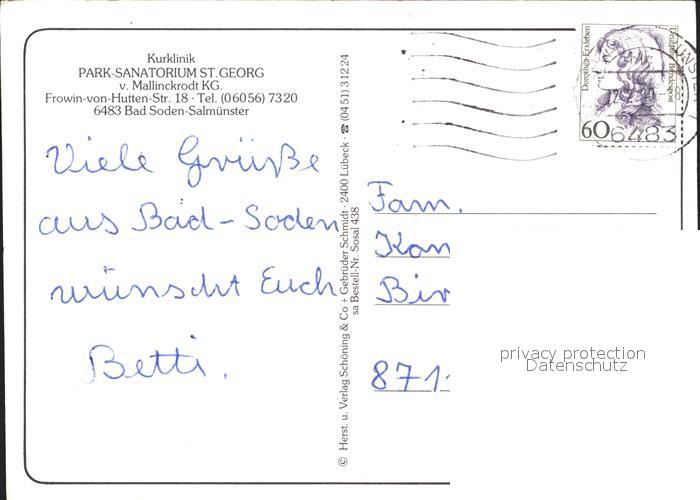 Kurklinik
PARK-SANATORIUM ST. GEORG
v. Mallinckrodt KG.
Frowin-von-Hutten-Str. 18 · Tel. (06056) 7320
6483 Bad Soden-Salmünster
Viele Grüße
aus Bad-Soden
wünscht Euch
Betti.
© Herst. u. Verlag Schöning & Co + Gebrüder Schmidt · 2400 Lübeck · ☎ (0451) 31224
sa Bestell-Nr. Sosal 438
Dorothea Erxleben
Deutsche Bundespost
60
6483
Fam.
871
privacy protection
Datenschutz